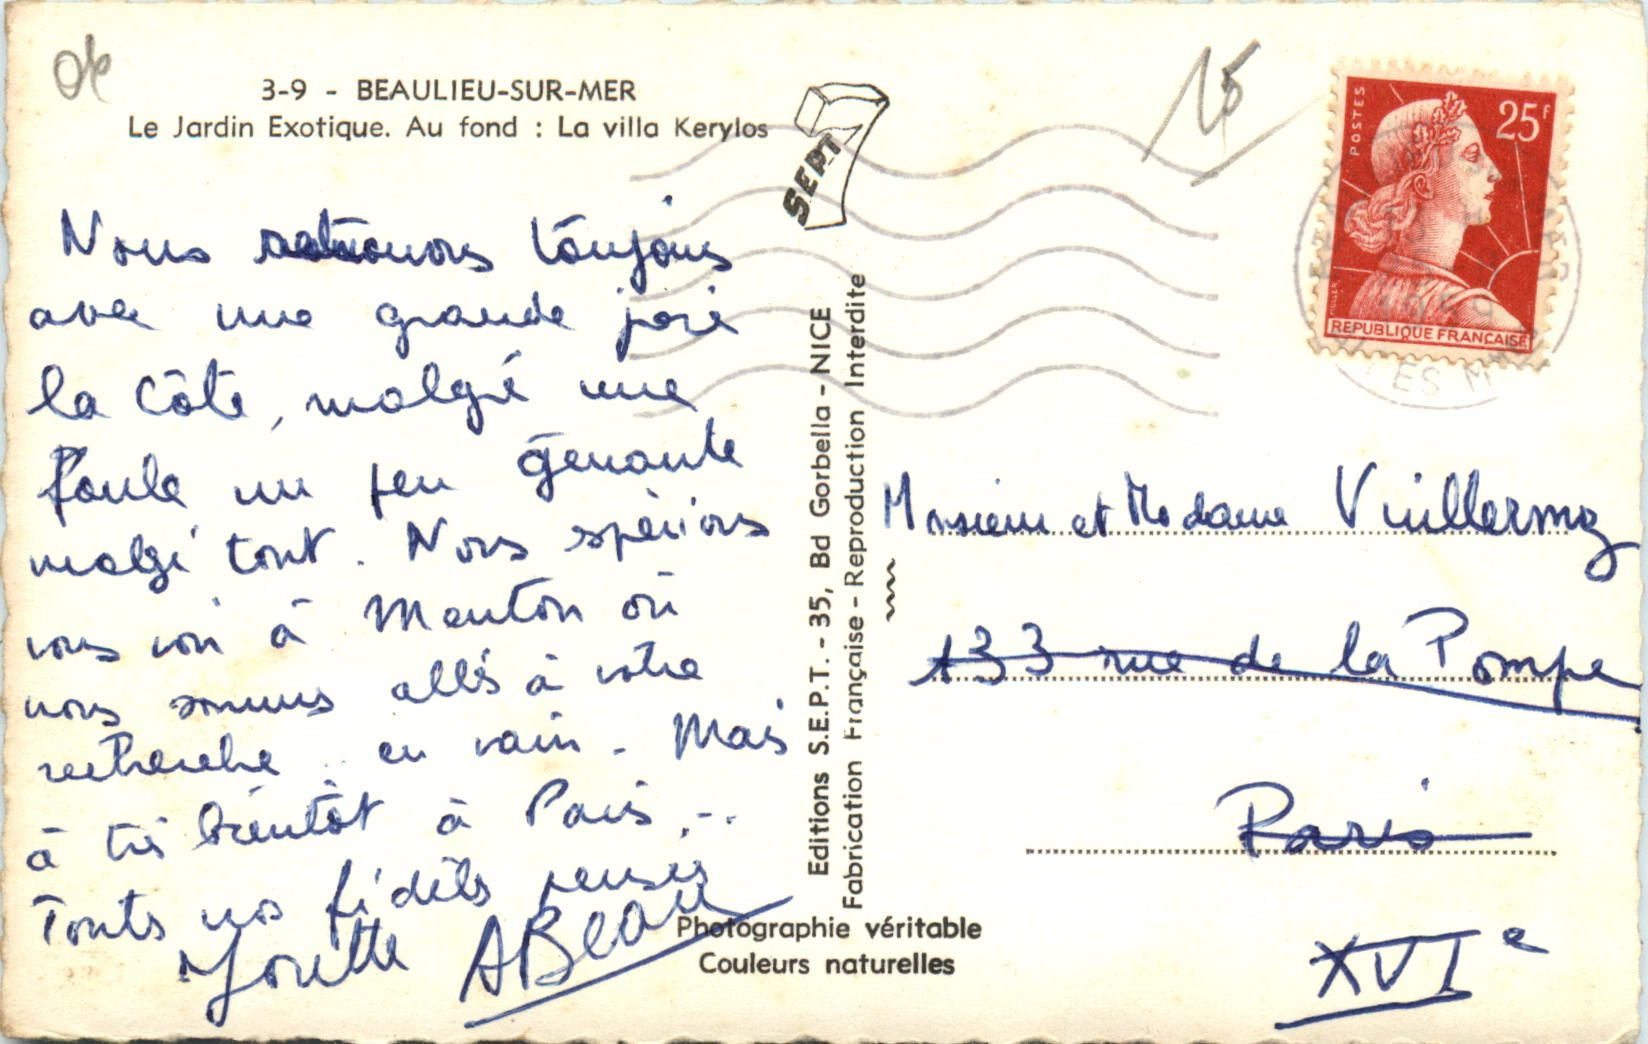 3-9 - BEAULIEU-SUR-MER
Le Jardin Exotique. Au fond : La villa Kerylos
Nous retrouvons toujours
avec une grande joie
la Côte, malgré une
foule un peu gênante
malgré tout. Nous espérions
vous voir à Menton où
nous sommes allés à votre
recherche .. en vain. Mais
à très bientôt à Paris...
Toutes nos fidèles pensées
Josette ABeau
SEPT
Editions S.E.P.T. - 35, Bd Gorbella - NICE
Fabrication Française - Reproduction Interdite
Photographie véritable
Couleurs naturelles
15
POSTES
25F
REPUBLIQUE FRANÇAISE
1959
Monsieur et Madame Vuillermoz
133 rue de la Pompe
Paris
XVIe